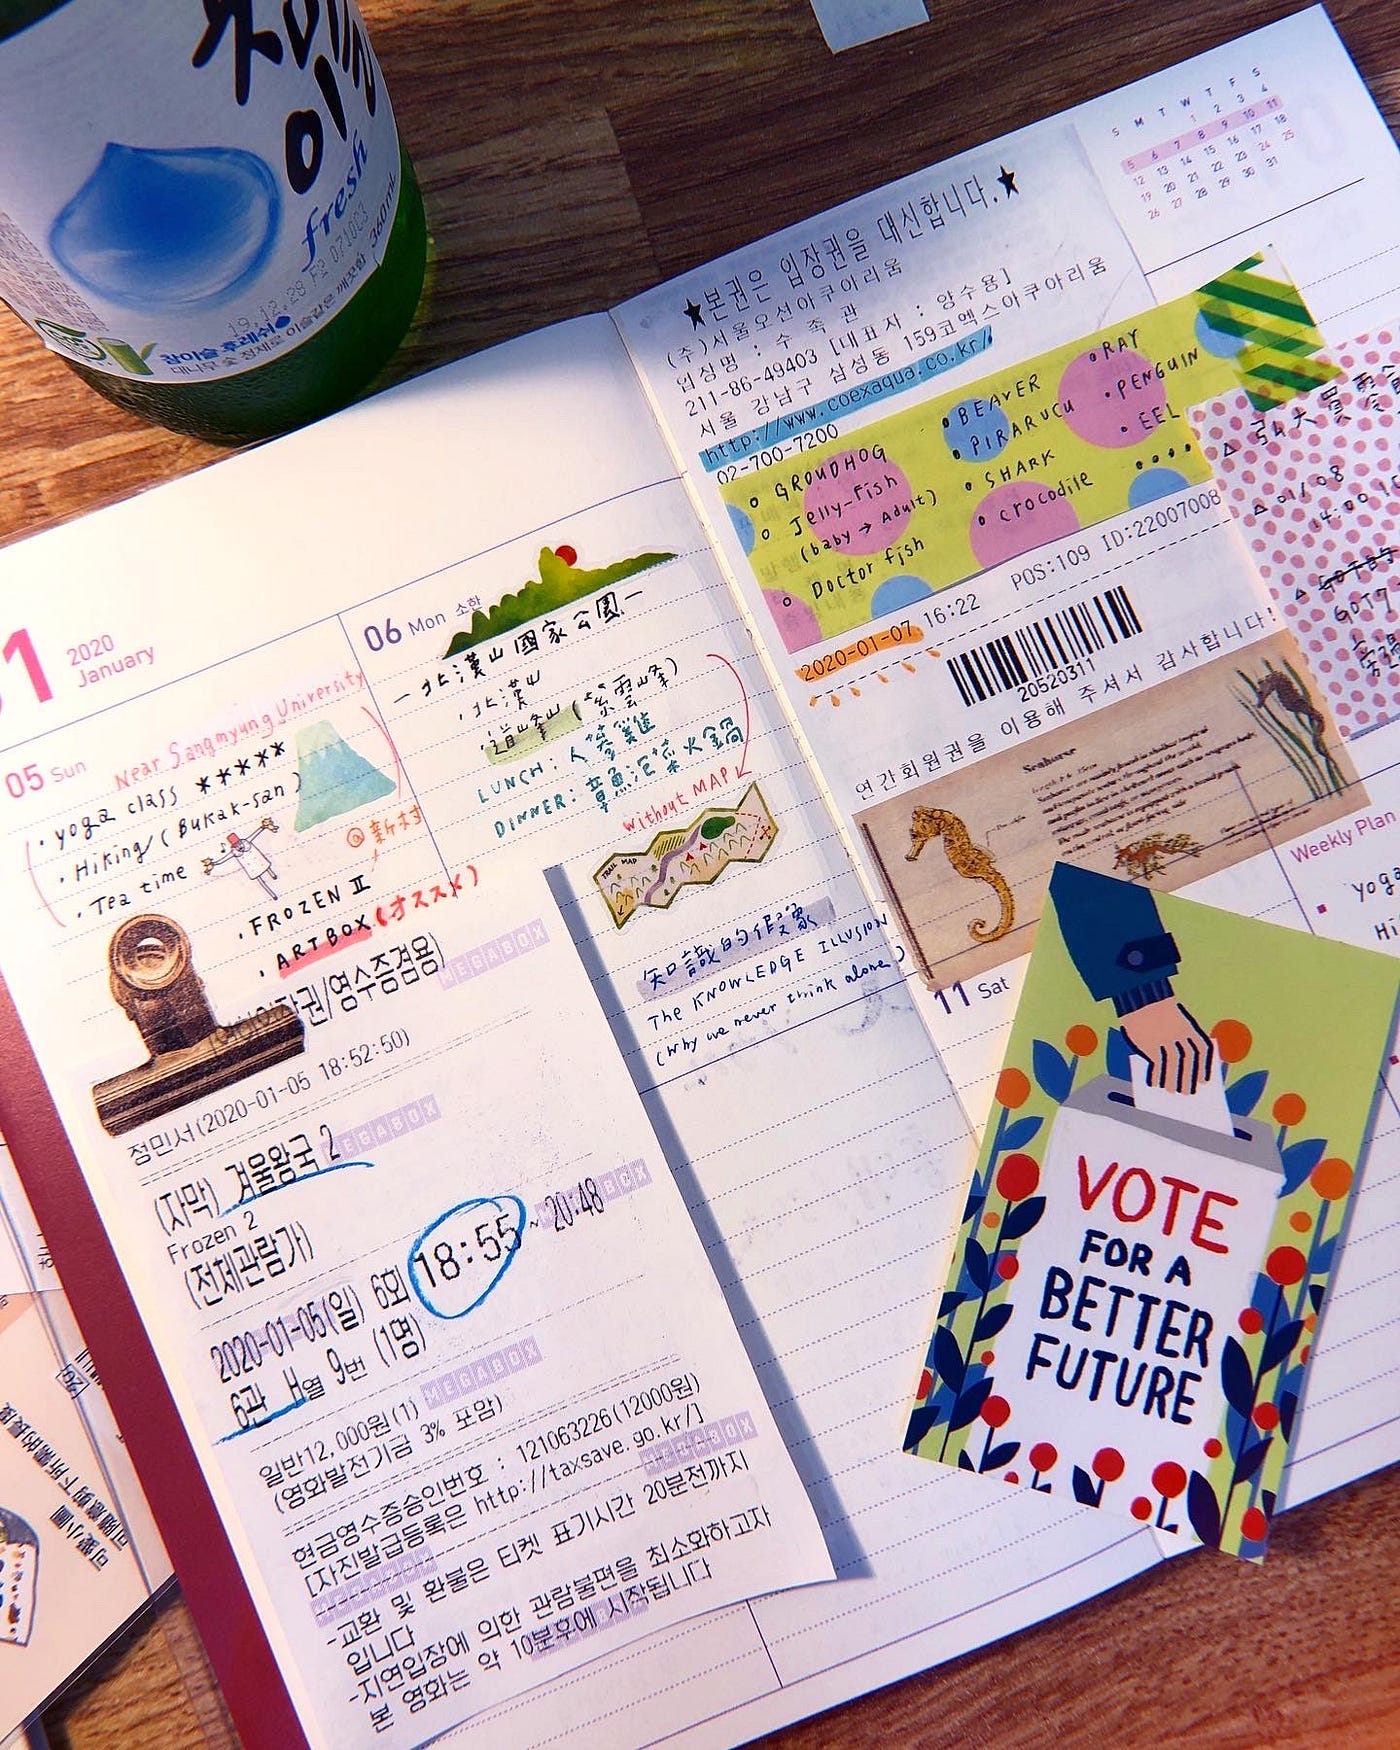 참이슬
fresh
360mL
19.12.28 F2 0710C3
참이슬 후레쉬
대나무 숯 정제로 이슬같은 깨끗함
01
2020
January
05 Sun
Near Sangmyung University
· yoga class *****
· Hiking (Bukak-san)
· Tea time
@新村
· FROZEN II
· ARTBOX (オススメ)
06 Mon 소한
—北漢山國家公園—
· 北漢山
· 道峰山 (紫雲峰)
LUNCH: 人蔘雞
DINNER: 章魚泡菜火鍋
without MAP
TRAIL MAP
知識的假象
The KNOWLEDGE ILLUSION
(Why we never think alone)
입장권/영수증겸용)
MEGABOX
정민서(2020-01-05 18:52:50)
MEGABOX
(자막) 겨울왕국 2
Frozen 2
(전체관람가)
2020-01-05(일) 6회 18:55 ~ 20:48
6관 H열 9번 (1명)
MEGABOX
일반12,000원(1)
(영화발전기금 3% 포함)
현금영수증승인번호 : 121063226(12000원)
[자진발급등록은 http://taxsave.go.kr/]
MEGABOX
-교환 및 환불은 티켓 표기시간 20분전까지
입니다
-지연입장에 의한 관람불편을 최소화하고자
본 영화는 약 10분후에 시작됩니다
★본권은 입장권을 대신합니다.★
(주)서울오션아쿠아리움
업장명 : 수 족 관
211-86-49403 [대표자 : 양수용]
서울 강남구 삼성동 159코엑스아쿠아리움
http://www.coexaqua.co.kr/
02-700-7200
○ GROUDHOG
○ Jelly-fish
(baby → Adult)
○ Doctor fish
• BEAVER
• PIRARUCU
○ SHARK
○ crocodile
○ RAY
• PENGUIN
• EEL
••••
POS:109 ID:22007008
2020-01-07 16:22
20520311
연간회원권을 이용해 주셔서 감사합니다!
Seahorse
S M T W T F S
1 2 3 4
5 6 7 8 9 10 11
12 13 14 15 16 17 18
19 20 21 22 23 24 25
26 27 28 29 30 31
△ 弘大買
△ 01/08
14:00
GOT7
Weekly Plan
yoga
Hi
11 Sat
VOTE
FOR A
BETTER
FUTURE